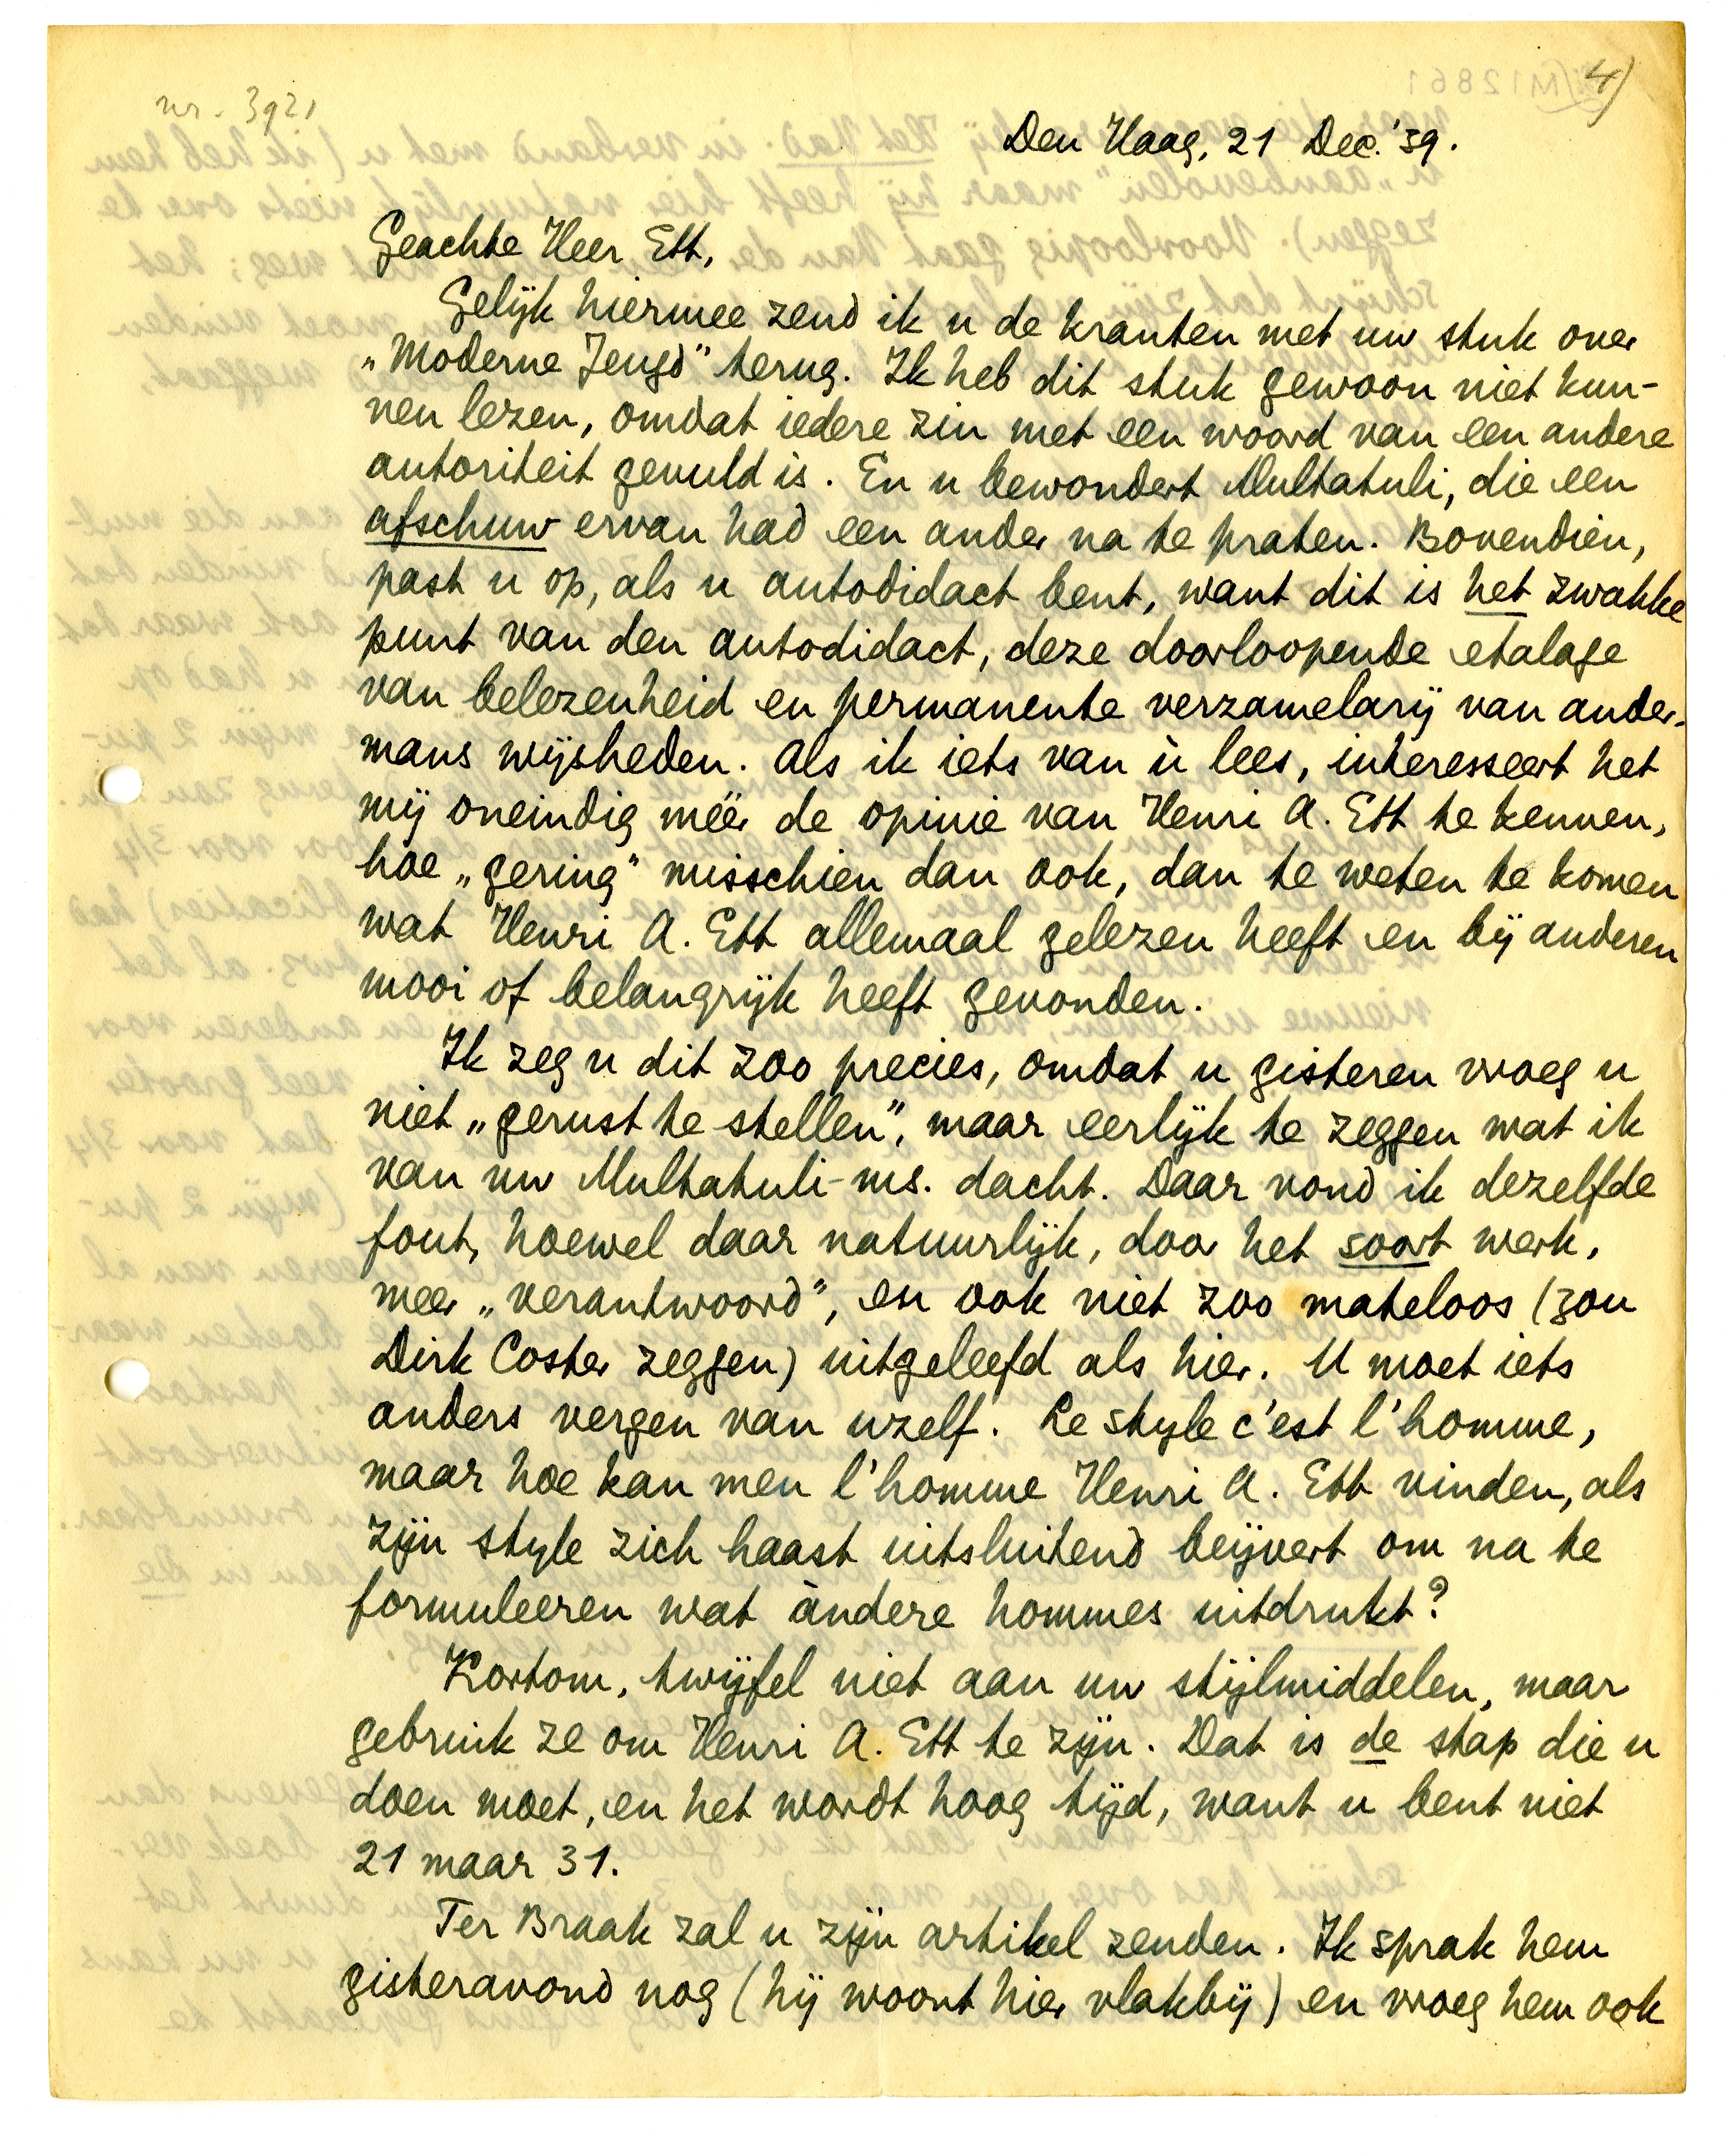 nr. 3921
4)
Den Haag, 21 Dec. '39.
Geachte Heer Ett,
Gelijk hiermee zend ik u de kranten met uw stuk over
„Moderne Jeugd” terug. Ik heb dit stuk gewoon niet kun-
nen lezen, omdat iedere zin met een woord van een andere
autoriteit gevuld is. En u bewondert Multatuli, die een
afschuw ervan had een ander na te praten. Bovendien,
past u op, als u autodidact bent, want dit is het zwakke
punt van den autodidact, deze doorloopende etalage
van belezenheid en permanente verzamelarij van ander-
mans wijsheden. Als ik iets van ù lees, interesseert het
mij oneindig méér de opinie van Henri A. Ett te kennen,
hoe „gering” misschien dan ook, dan te weten te komen
wat Henri A. Ett allemaal gelezen heeft en bij anderen
mooi of belangrijk heeft gevonden.
Ik zeg u dit zoo precies, omdat u gisteren vroeg u
niet „gerust te stellen”, maar eerlijk te zeggen wat ik
van uw Multatuli-ms. dacht. Daar vond ik dezelfde
fout, hoewel daar natuurlijk, door het soort werk,
meer „verantwoord”, en ook niet zoo mateloos (zou
Dirk Coster zeggen) uitgeleefd als hier. U moet iets
anders vergen van uzelf. Le style c'est l'homme,
maar hoe kan men l'homme Henri A. Ett vinden, als
zijn style zich haast uitsluitend beijvert om na te
formuleeren wat àndere hommes uitdrukt?
Kortom, twijfel niet aan uw stijlmiddelen, maar
gebruik ze om Henri A. Ett te zijn. Dat is de stap die u
doen moet, en het wordt hoog tijd, want u bent niet
21 maar 31.
Ter Braak zal u zijn artikel zenden. Ik sprak hem
gisteravond nog (hij woont hier vlakbij) en vroeg hem ook